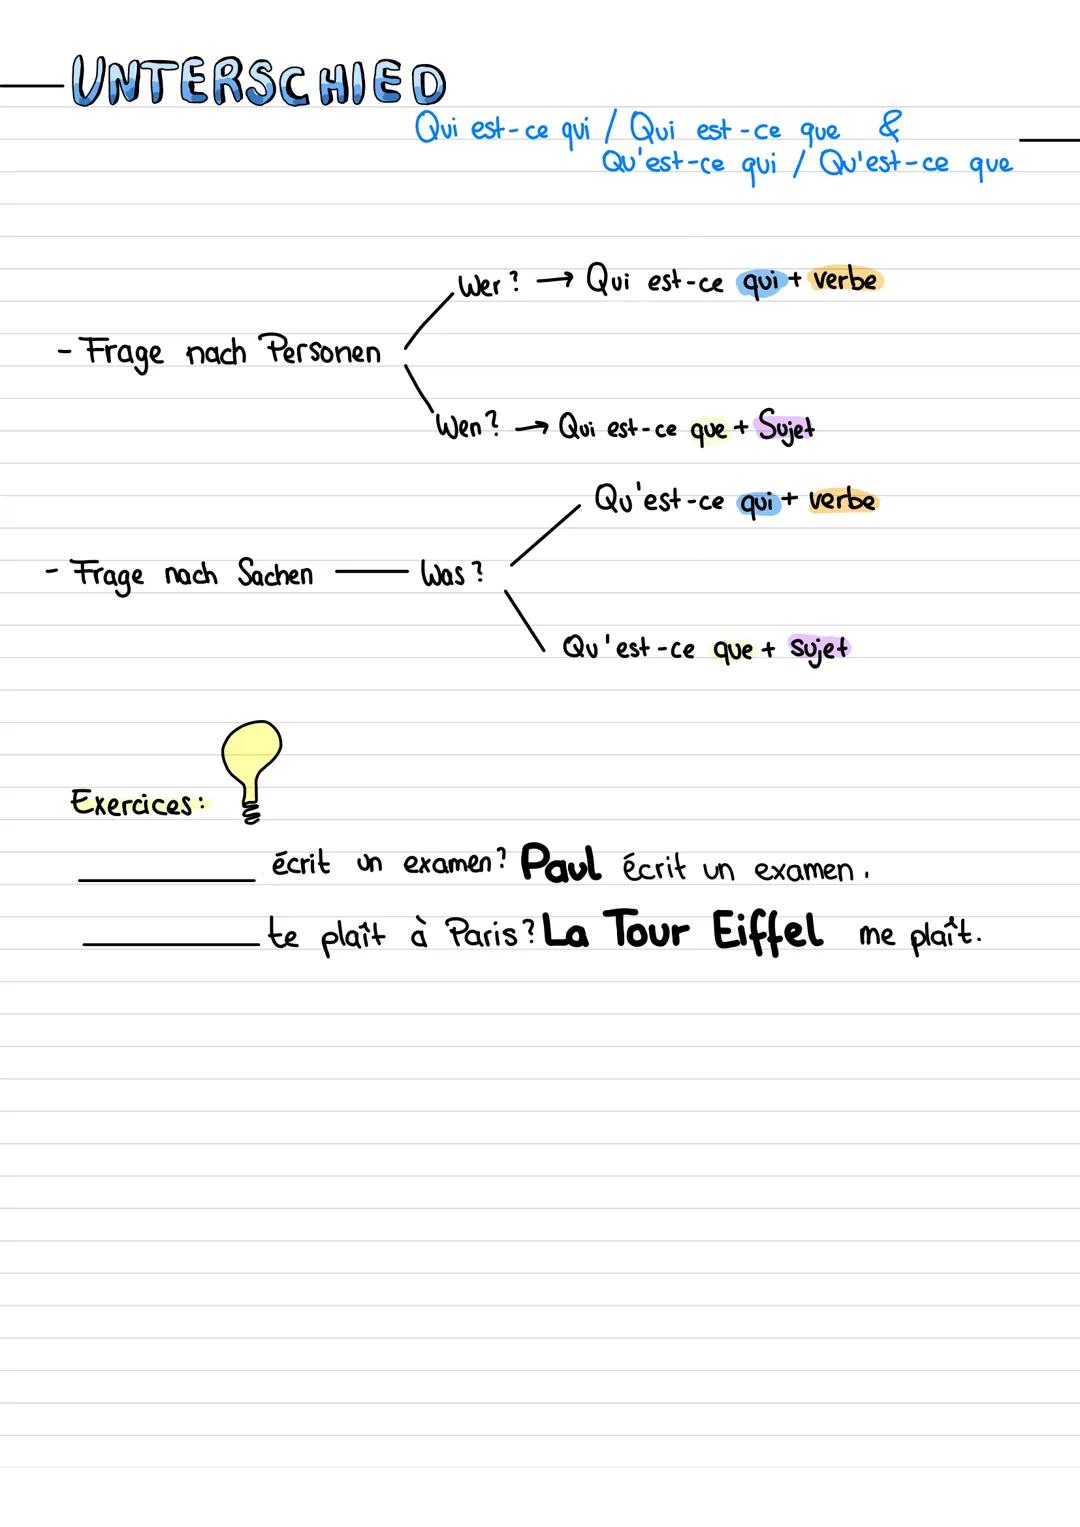 UNTERSCHIED
Qui est-ce qui / Qui est-ce que &
Qu'est-ce qui / Qu'est-ce que
Wer? → Qui est-ce qui + verbe
- Frage nach Personen
Wen? → Qui est-ce que + Sujet
Qu'est-ce qui + verbe
- Frage nach Sachen — Was?
Qu'est-ce que + sujet
Exercices:
________ écrit un examen? Paul écrit un examen.
________ te plaît à Paris? La Tour Eiffel me plaît.